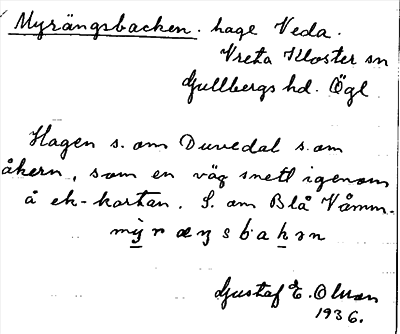 Myrängsbacken. hage Veda.
Vreta Kloster sn
Gullbergs hd. Ögl.
Hagen s. om Duvedal s. om
åkern, som en väg snett igenom
å ek-kartan. S. om Blå Våmm.
my̱ræŋsbaḵən
Gustaf E. Olsson
1936.